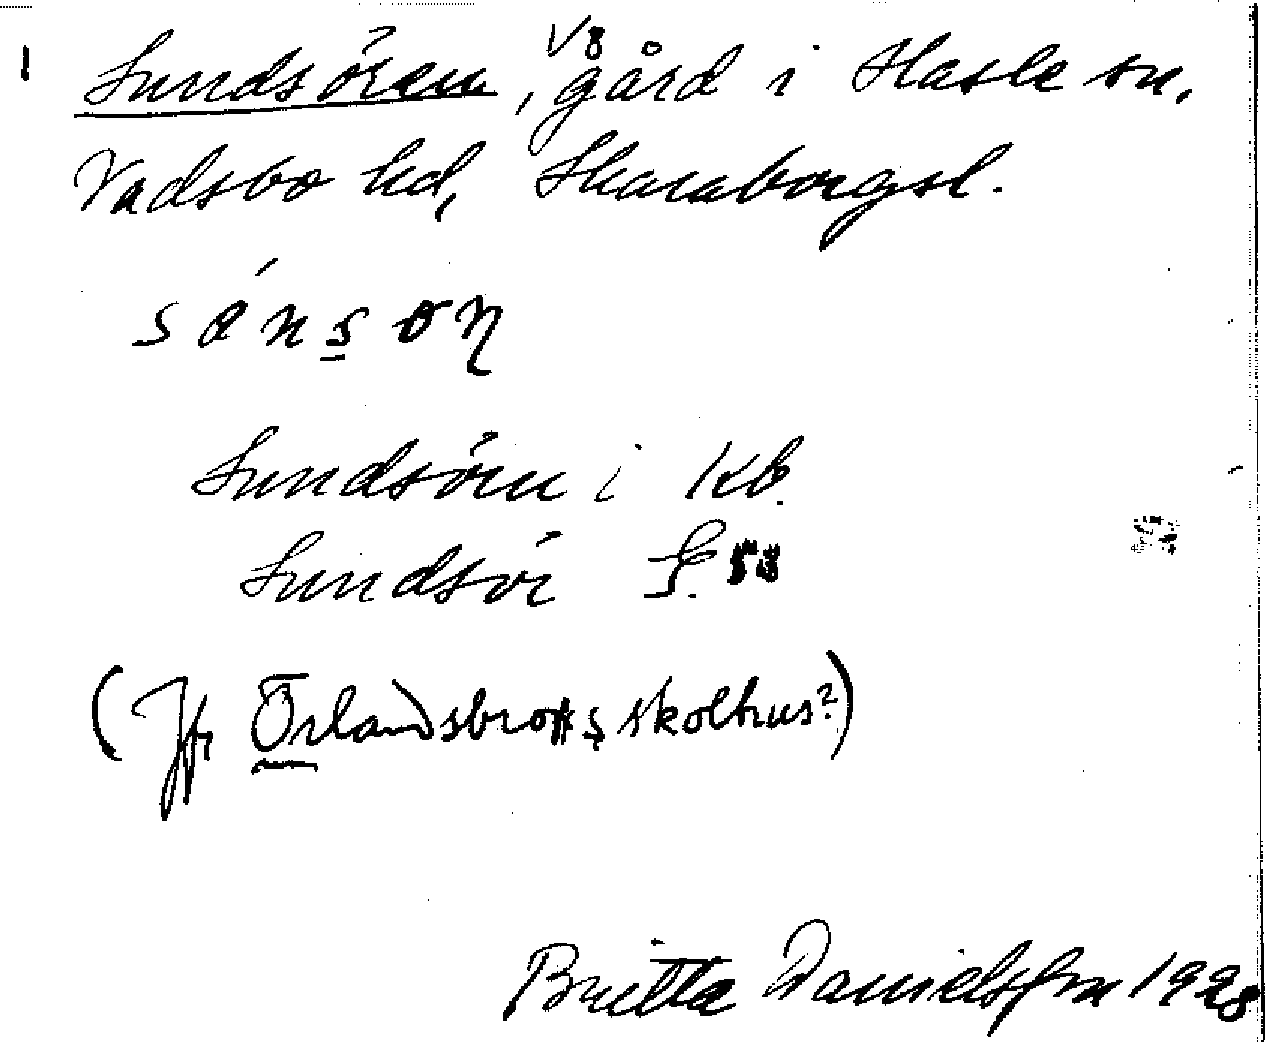 1 Sundsören, 1/8 gård i Hasle sn,
Vadsbo hd, Skaraborgsl.
sánsọn
Sundsören i Kb.
Sundsör
(Jfr Örlandsbro skolhus?)
Britta Danielsson 1928